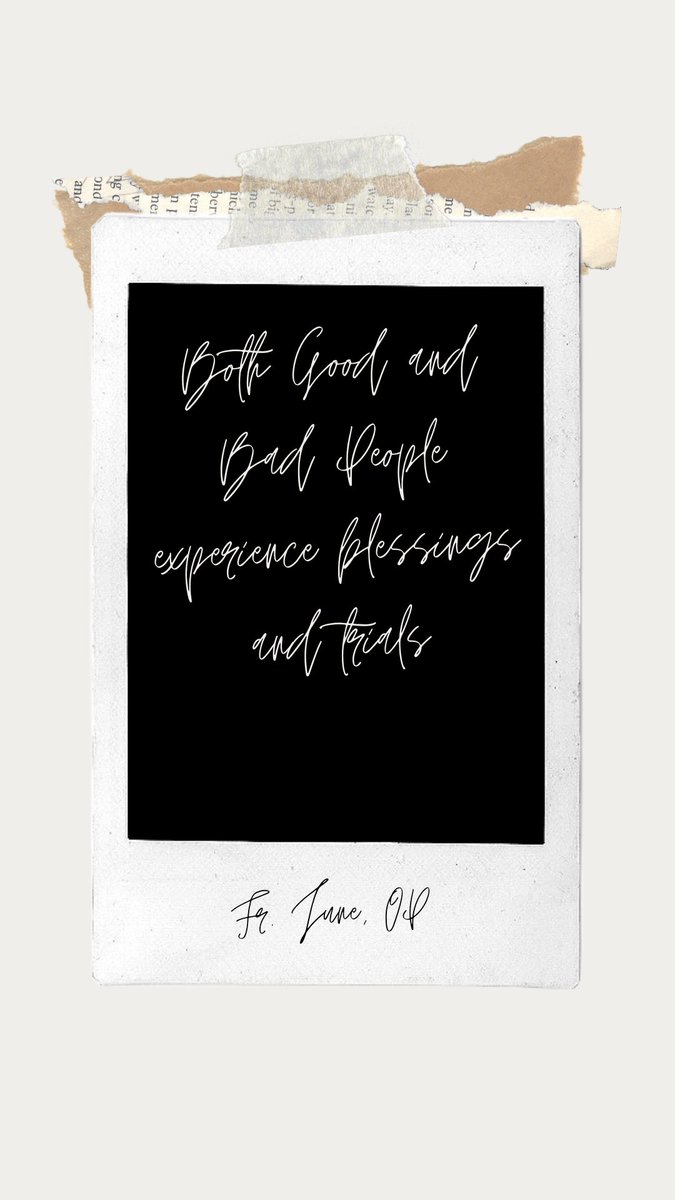 Both Good and
Bad People
experience blessings
and trials
Fr. June, OP